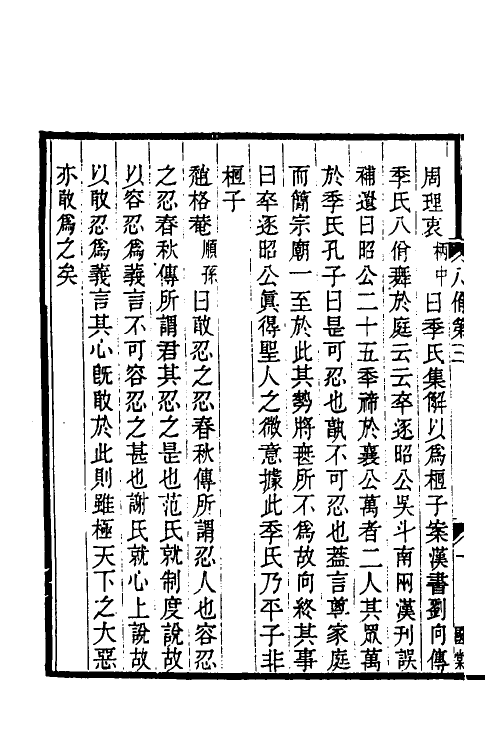 八佾第三
一
周理衷柄中曰季氏集解以爲桓子案漢書劉向傳
季氏八佾舞於庭云云卒逐昭公吳斗南兩漢刊誤
補遺曰昭公二十五年禘於襄公萬者二人其眾萬
於季氏孔子曰是可忍也孰不可忍也蓋言尊家庭
而簡宗廟一至於此其勢將無所不爲故向終其事
曰卒逐昭公眞得聖人之微意據此季氏乃平子非
桓子
趙格菴順孫曰敢忍之忍春秋傳所謂忍人也容忍
之忍春秋傳所謂君其忍之是也范氏就制度說故
以容忍爲義言不可容忍之甚也謝氏就心上說故
以敢忍爲義言其心旣敢於此則雖極天下之大惡
亦敢爲之矣